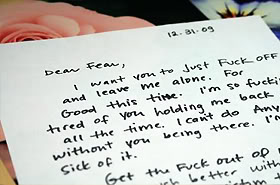 12.31.09
Dear Fear,
I want you to just Fuck OFF
and leave me alone. For
Good this time. I'm so fuckin
tired of you holding me back
all the time. I cant do Any
without you being there. I'm
Sick of it.
Get the Fuck out of
better with